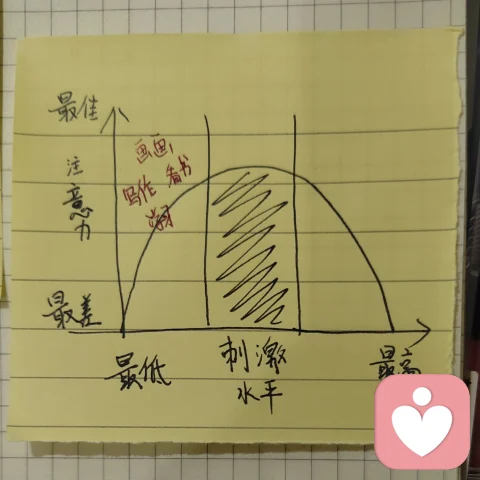 最佳
注意力
画画,
写作 看书
最差
最低
刺激
水平
最高